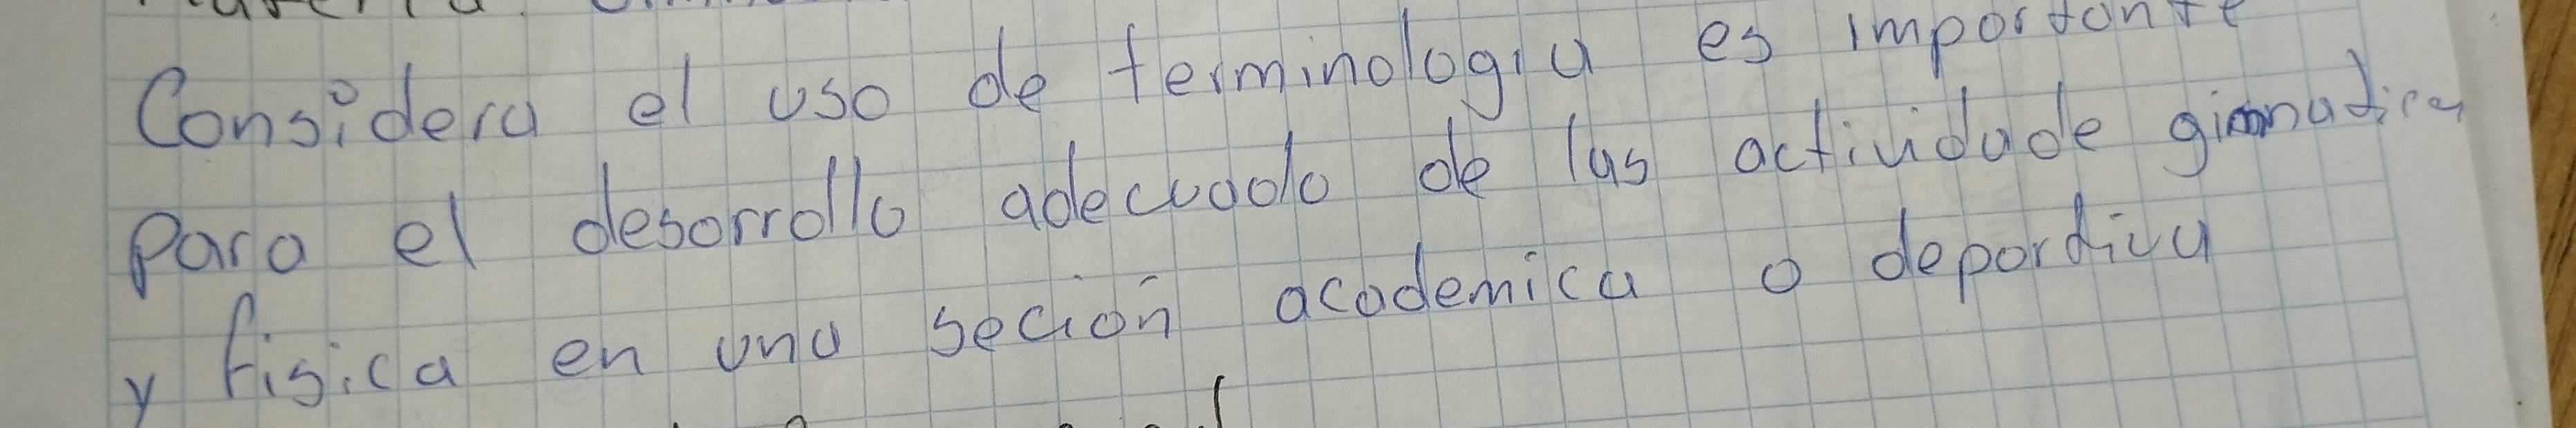 Considera el uso de terminologia es importante
para el desarrollo adecuado de las actividade gimnatica
y fisica en una seción academica o deportiva